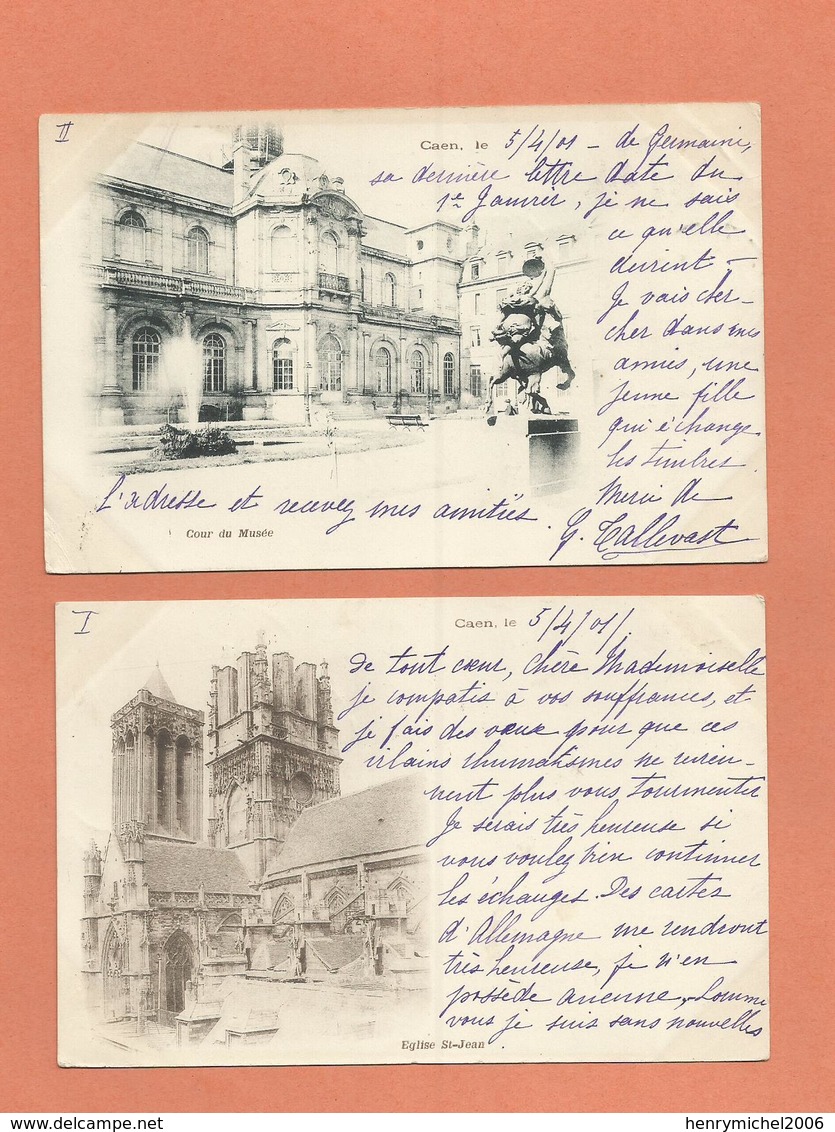 II
Caen, le 5/4/01 – de Germaine,
sa dernière lettre date du
1er Janvier, je ne sais
ce qu'elle
devient –
Je vais cher-
cher dans mes
amies, une
jeune fille
qui échange
les timbres.
Merci de
l'adresse et recevez mes amitiés.
G. Tallevast
Cour du Musée
I
Caen, le 5/4/01/.
de tout cœur, chère Mademoiselle
je compatis à vos souffrances, et
je fais des vœux pour que ces
vilains rhumatismes ne revien-
nent plus vous tourmenter
Je serais très heureuse si
vous voulez bien continuer
les échanges. Des cartes
d'Allemagne me rendront
très heureuse, je n'en
possède aucune, – Comme
vous je suis sans nouvelles
Eglise St-Jean
delcampe.net
henrymichel2006